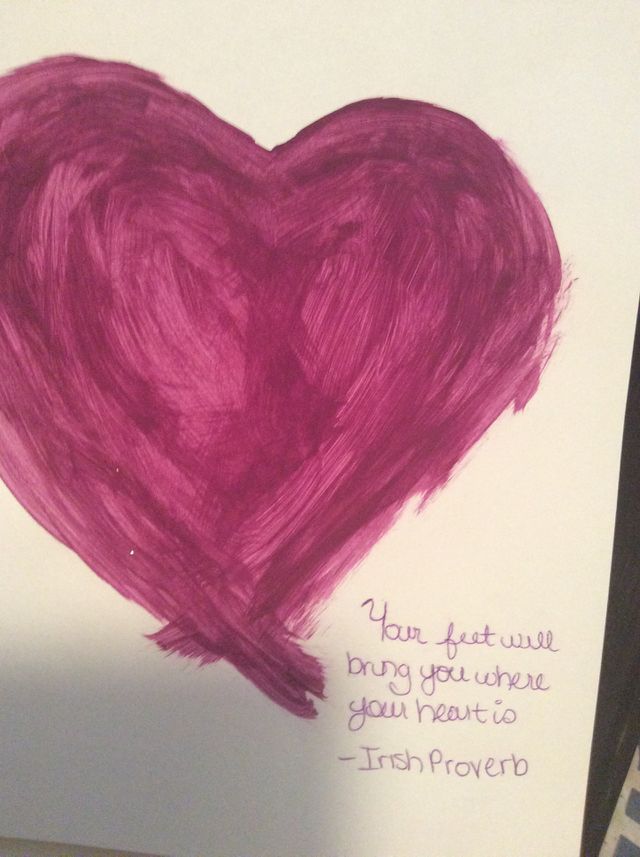 Your feet will
bring you where
your heart is
- Irish Proverb